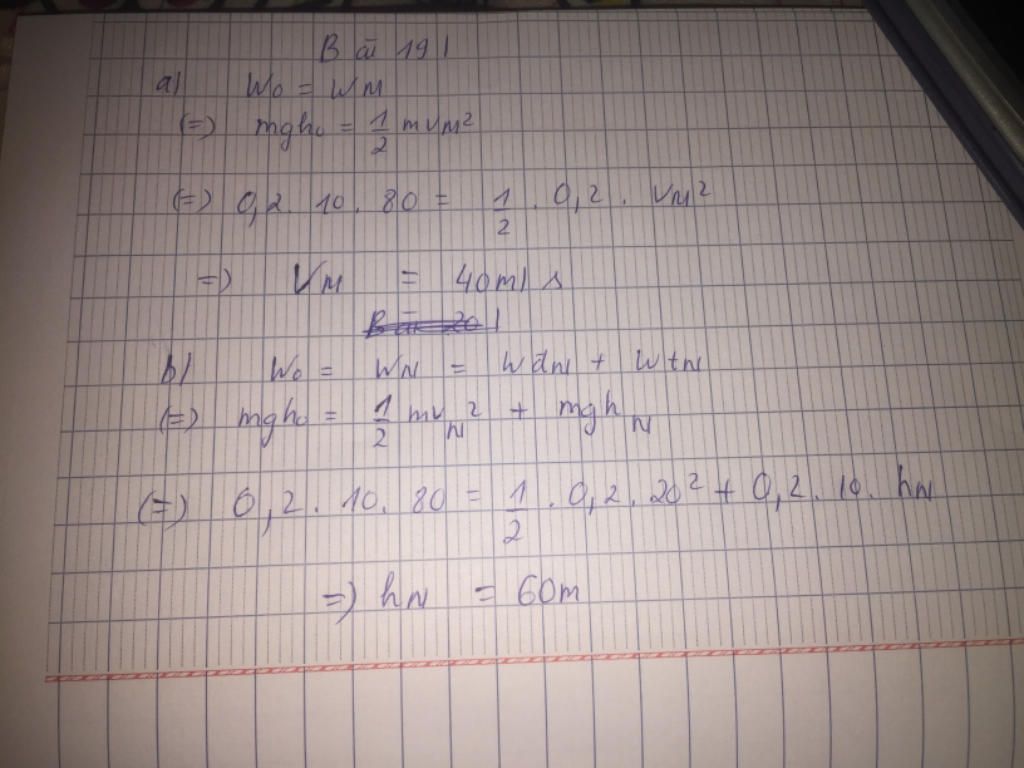 Bài 19|
a) W₀ = WM
(=) mgh₀ = 1/2 mvM²
(=) 0,2. 10. 80 = 1/2 . 0,2. VM²
=) VM = 40m/s
b) W₀ = WN = WđN + WtN
(=) mgh₀ = 1/2 mvN² + mghN
(=) 0,2. 10. 80 = 1/2 . 0,2. 20² + 0,2. 10. hN
=) hN = 60m